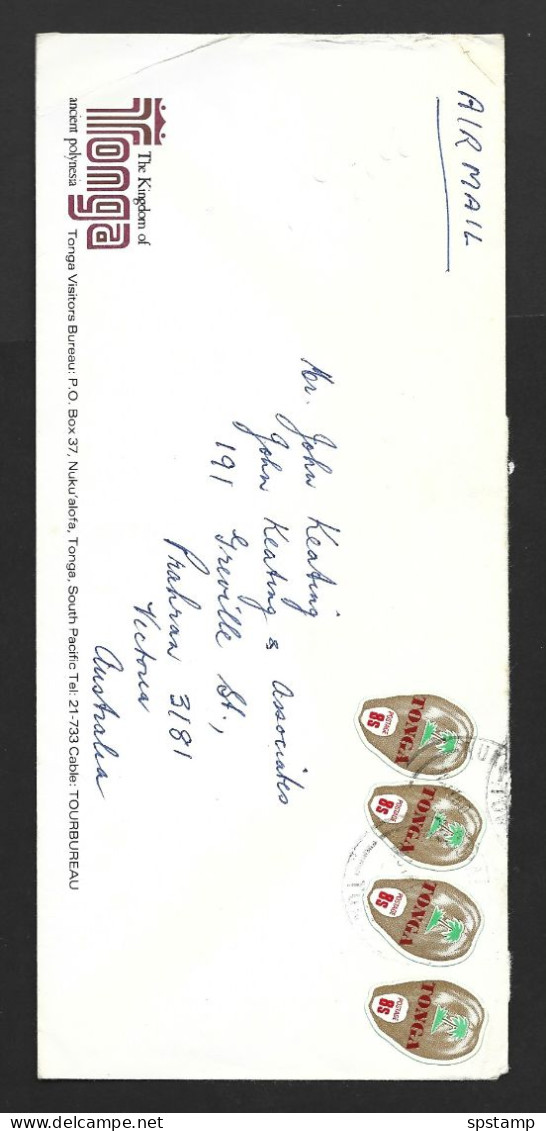 The Kingdom of
Tonga
ancient polynesia
Tonga Visitors Bureau: P.O. Box 37, Nuku'alofa, Tonga, South Pacific Tel: 21-733 Cable: TOURBUREAU
AIR MAIL
Mr. John Keating
John Keating & Associates
191 Greville St.,
Prahran 3181
Victoria
Australia
TONGA
POSTAGE
8s
TONGA
POSTAGE
8s
TONGA
POSTAGE
8s
TONGA
POSTAGE
8s
delcampe.net
spstamp